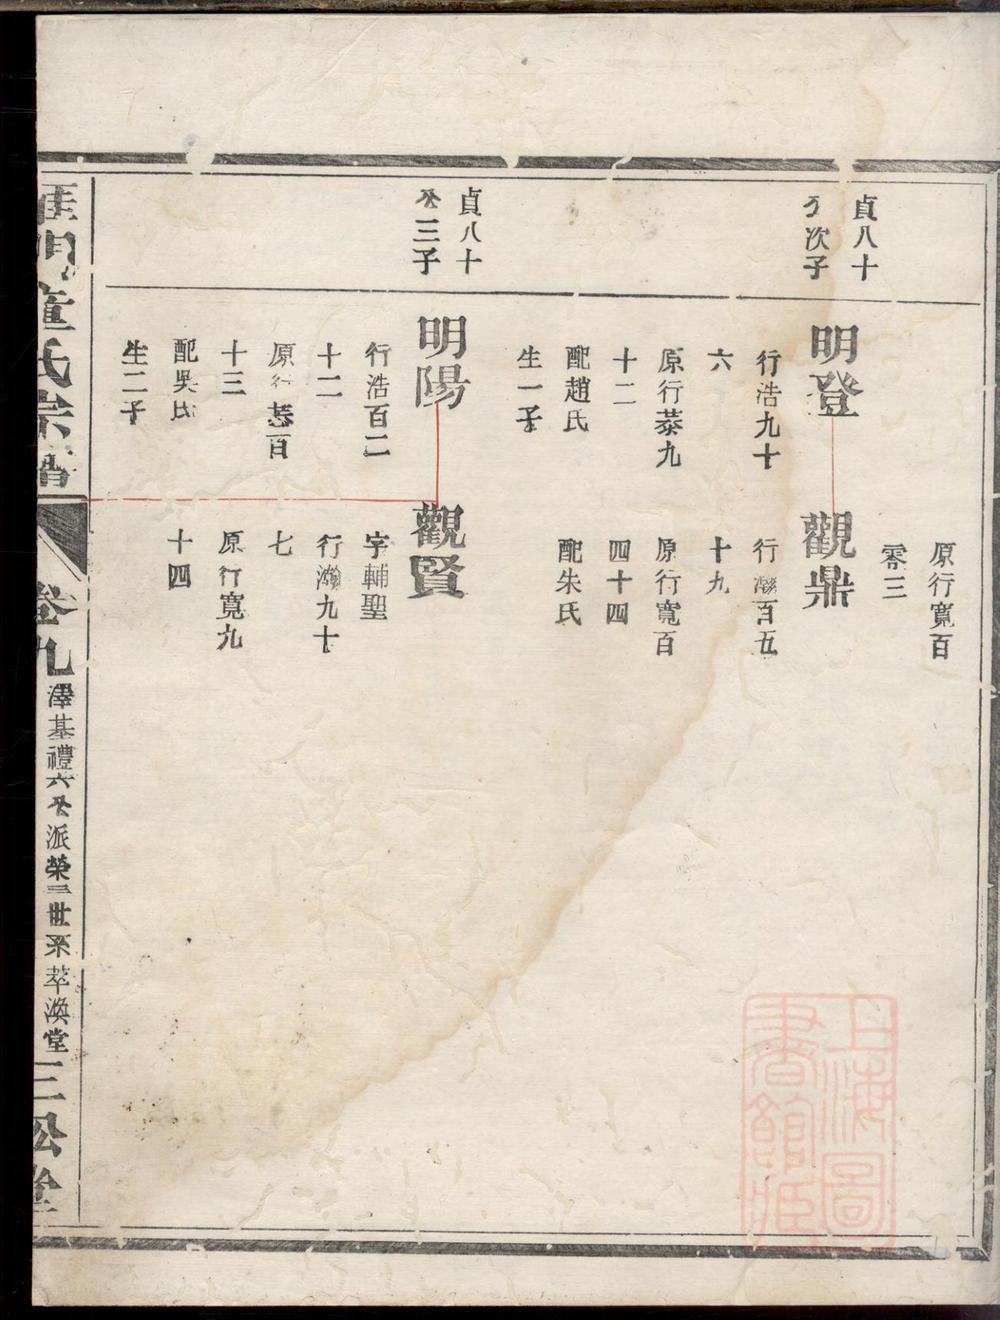 原行寬百
零三
貞八十
公次子
明登
觀鼎
行浩九十
六
原行恭九
十二
配趙氏
生一子
行瀚百五
十九
原行寬百
四十四
配朱氏
貞八十
公三子
明陽
觀賢
行浩百二
十二
原行恭百
十三
配吳氏
生二子
字輔聖
行瀚九十
七
原行寬九
十四
童氏宗譜
卷九
澤基禮六公派榮三世系萃渙堂
三松堂
上海圖
書館藏